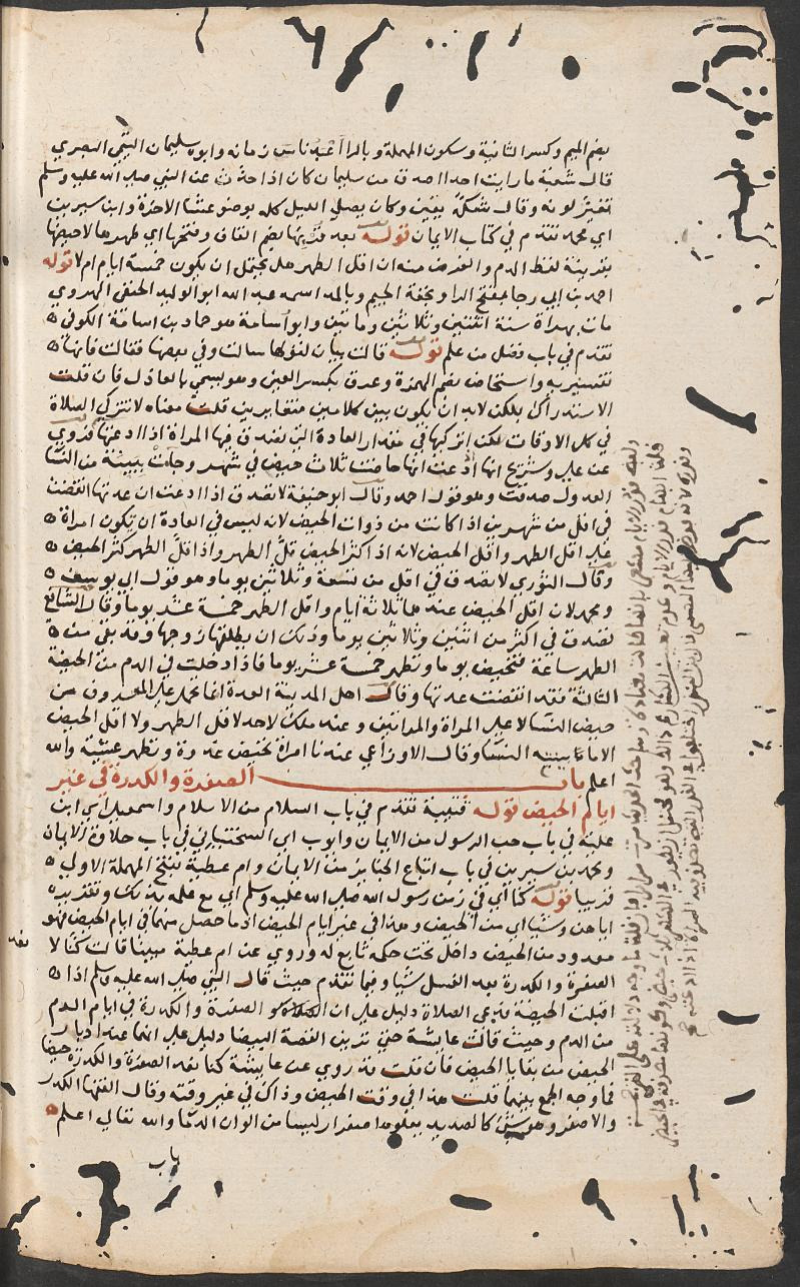 بضم الميم وكسر الثانية وسكون المهملة وبالرا أعبد ناس زمانه وابوه سليمان التيمي البصري
قال شعبة ما رايت احدا اصدق من سليمان كان اذا حدث عن النبي صلى الله عليه وسلم
تغير لونه وقال شكه يقين وكان يصلي الليل كله بوضو عشا الاخرة وابن سيرين
اي محمد تقدم في كتاب الايمان قوله بعد قرئها بضم القاف وفتحها اي طهرها لا حيضها
بقرينة لفظ الدم والغرض منه ان اقل الطهر هل يحتمل ان يكون خمسة ايام ام لا قوله
احمد بن ابي رجا بفتح الرا وبخفة الجيم وبالمد اسمه عبد الله ابو الوليد الحنفي الهروي
مات بهراة سنة اثنتين وثلاثين ومائتين وابو اسامة هو حماد بن اسامة الكوفي
تقدم في باب فضل من علم قوله قالت بيان لقولها سالت وفي بعضها فقالت فانها
تفسيرية واستحاض بضم الهمزة وعرق بكسر العين وهو يسمي بالعاذل فان قلت
الاستدراك بلكن لابد ان يكون بين كلامين متغايرين قلت معناه لا تتركي الصلاة
في كل الاوقات لكن اتركيها في مقدار العادة التي تصدق فيها المراة اذا ادعتها فروي
عن علي وشريح انها اذا ادعت انها حاضت ثلاث حيض في شهر وجات ببينة من النسا
العدول صدقت وهو قول احمد وقال ابو حنيفة لا تصدق اذا ادعت ان عدتها انقضت
في اقل من شهرين اذا كانت من ذوات الحيض لانه ليس في العادة ان تكون امراة
علي اقل الطهر واقل الحيض لانه اذا كثر الحيض قل الطهر واذا قل الطهر كثر الحيض
وقال الثوري لا تصدق في اقل من تسعة وثلاثين يوما وهو قول ابي يوسف
ومحمد لان اقل الحيض عندهما ثلاثة ايام واقل الطهر خمسة عشر يوما وقال الشافعي
تصدق في اكثر من اثنين وثلاثين يوما وذلك ان يطلقها زوجها وقد بقي من
الطهر ساعة فتحيض يوما وتطهر خمسة عشر يوما فاذا دخلت في الدم من الحيضة
الثالثة فقد انقضت عدتها وقال اهل المدينة العدة انما تحمل على المعروف من
حيض النسا لا على المراة والمراتين وعند ملك لا حد لاقل الطهر ولا اقل الحيض
الا ما بينته النسا وقال الاوزاعي عندنا امراة تحيض غدوة وتطهر عشية والله
اعلم باب الصفرة والكدرة في غير
ايام الحيض قوله قتيبة تقدم في باب السلام من الاسلام واسمعيل اي ابن
علية في باب حب الرسول من الايمان وايوب اي السختياني في باب حلاوة الايمان
ومحمد بن سيرين في باب اتباع الجنايز من الايمان وام عطية بفتح المهملة الاولى
قريبا قوله كنا اي في زمن رسول الله صلى الله عليه وسلم اي مع علمه بذلك وتقريره
اياهن وشيا اي من الحيض وهذا في غير ايام الحيض اذ ما حصل منهما في ايام الحيض فهو
معدود من الحيض داخل تحت حكمه تابع له وروي عن ام عطية مبينا قالت كنا لا نعد
الصفرة والكدرة بعد الغسل شيا وفيما تقدم حيث قال النبي صلى الله عليه وسلم اذا
اقبلت الحيضة فدعي الصلاة دليل على ان الصفرة والكدرة في ايام الدم
من الدم وحيث قالت عايشة حتى ترين القصة البيضا دليل على انهما عند ادبار
الحيض من بقايا الحيض فان قلت قد روي عن عايشة كنا نعد الصفرة والكدرة حيضا
فما وجه الجمع بينهما قلت هذا في وقت الحيض وذاك في غير وقته وقال الفقها الكدر
والاصفر وهو شي كالصديد يعلوه اصفرار ليسا من الوان الدما والله تعالى اعلم
باب